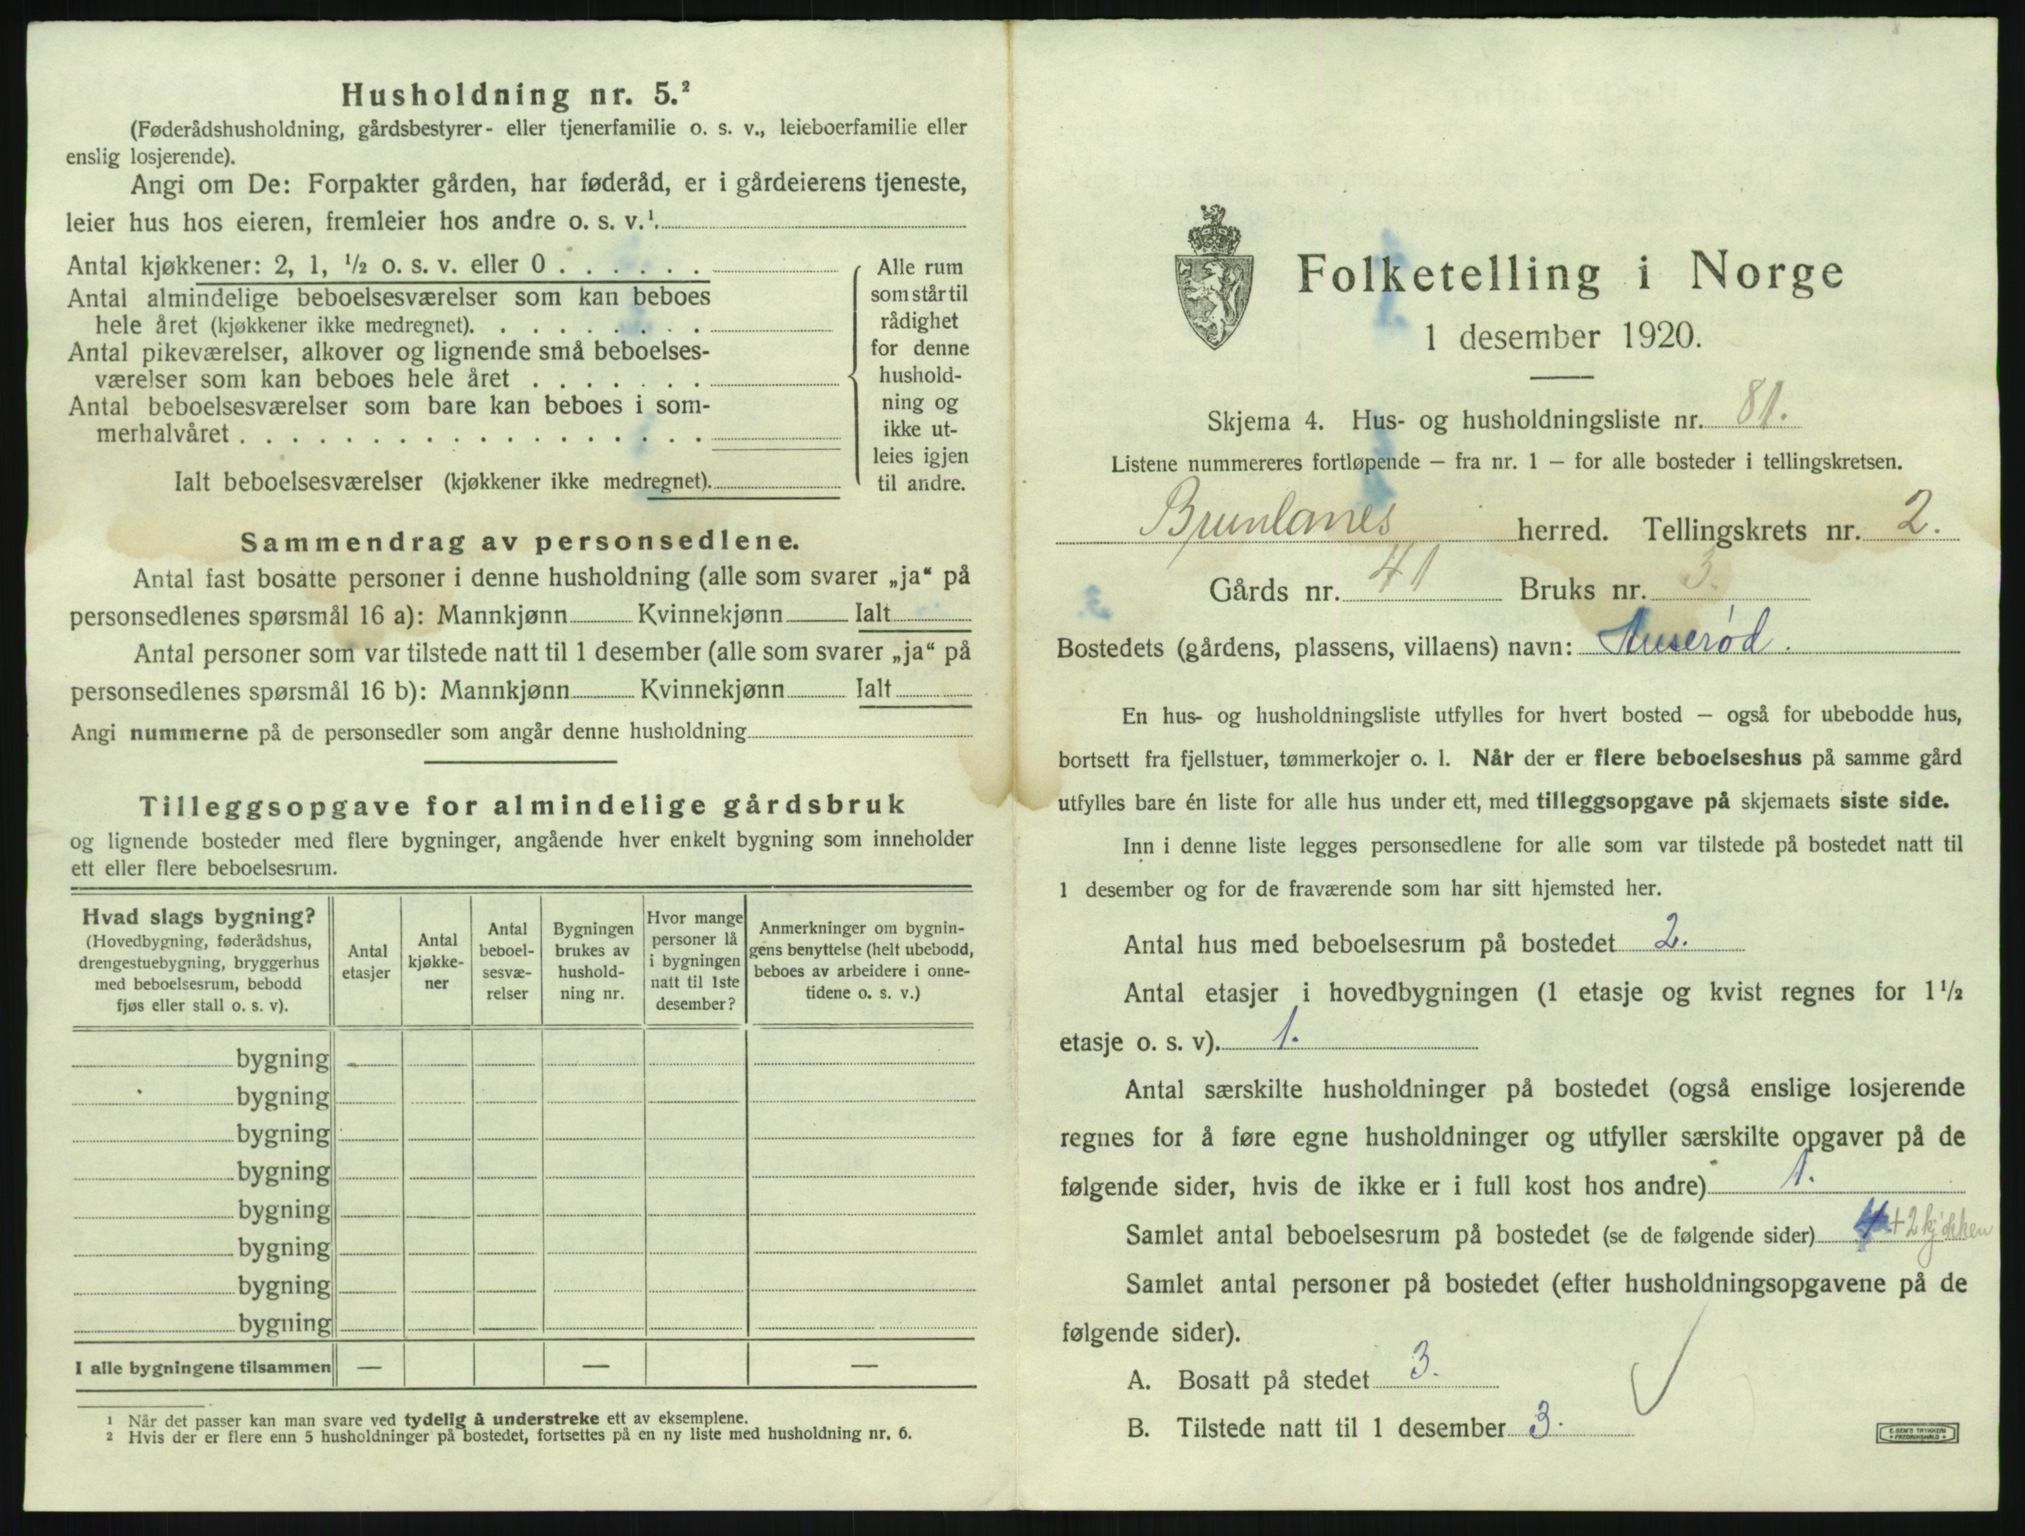 Husholdning nr. 5.²
(Føderådshusholdning, gårdsbestyrer- eller tjenerfamilie o. s. v., leieboerfamilie eller
enslig losjerende).
Angi om De: Forpakter gården, har føderåd, er i gårdeierens tjeneste,
leier hus hos eieren, fremleier hos andre o. s. v.¹.
Antal kjøkkener: 2, 1, ½ o. s. v. eller 0 . . . . . .
Antal almindelige beboelsesværelser som kan beboes
hele året (kjøkkener ikke medregnet). . . . . . . . .
Antal pikeværelser, alkover og lignende små beboelses-
værelser som kan beboes hele året . . . . . . .
Antal beboelsesværelser som bare kan beboes i som-
merhalvåret . . . . . . . . . . . . . . . . . .
Ialt beboelsesværelser (kjøkkener ikke medregnet).
Alle rum
som står til
rådighet
for denne
hushold-
ning og
ikke ut-
leies igjen
til andre.
Sammendrag av personsedlene.
Antal fast bosatte personer i denne husholdning (alle som svarer „ja“ på
personsedlenes spørsmål 16 a): Mannkjønn Kvinnekjønn Ialt
Antal personer som var tilstede natt til 1 desember (alle som svarer „ja“ på
personsedlenes spørsmål 16 b): Mannkjønn Kvinnekjønn Ialt
Angi nummerne på de personsedler som angår denne husholdning
Tilleggsopgave for almindelige gårdsbruk
og lignende bosteder med flere bygninger, angående hver enkelt bygning som inneholder
ett eller flere beboelsesrum.
Hvad slags bygning?
(Hovedbygning, føderådshus,
drengestuebygning, bryggerhus
med beboelsesrum, bebodd
fjøs eller stall o. s. v).
Antal
etasjer
Antal
kjøkke-
ner
Antal
beboel-
sesvæ-
relser
Bygningen
brukes av
hushold-
ning nr.
Hvor mange
personer lå
i bygningen
natt til 1ste
desember?
Anmerkninger om bygnin-
gens benyttelse (helt ubebodd,
beboes av arbeidere i onne-
tidene o. s. v.)
bygning
bygning
bygning
bygning
bygning
bygning
bygning
bygning
I alle bygningene tilsammen — — —
1 Når det passer kan man svare ved tydelig å understreke ett av eksemplene.
2 Hvis der er flere enn 5 husholdninger på bostedet, fortsettes på en ny liste med husholdning nr. 6.
Folketelling i Norge
1 desember 1920.
Skjema 4. Hus- og husholdningsliste nr. 81.
Listene nummereres fortløpende – fra nr. 1 – for alle bosteder i tellingskretsen.
Brunlanes herred. Tellingskrets nr. 2.
Gårds nr. 41 Bruks nr. 3.
Bostedets (gårdens, plassens, villaens) navn:
En hus- og husholdningsliste utfylles for hvert bosted – også for ubebodde hus,
bortsett fra fjellstuer, tømmerkojer o. l. Når der er flere beboelseshus på samme gård
utfylles bare én liste for alle hus under ett, med tilleggsopgave på skjemaets siste side.
Inn i denne liste legges personsedlene for alle som var tilstede på bostedet natt til
1 desember og for de fraværende som har sitt hjemsted her.
Antal hus med beboelsesrum på bostedet 2.
Antal etasjer i hovedbygningen (1 etasje og kvist regnes for 1½
etasje o. s. v). 1.
Antal særskilte husholdninger på bostedet (også enslige losjerende
regnes for å føre egne husholdninger og utfyller særskilte opgaver på de
følgende sider, hvis de ikke er i full kost hos andre) 1.
Samlet antal beboelsesrum på bostedet (se de følgende sider) + 2 kjøkken
Samlet antal personer på bostedet (efter husholdningsopgavene på de
følgende sider).
A. Bosatt på stedet 3.
B. Tilstede natt til 1 desember 3.